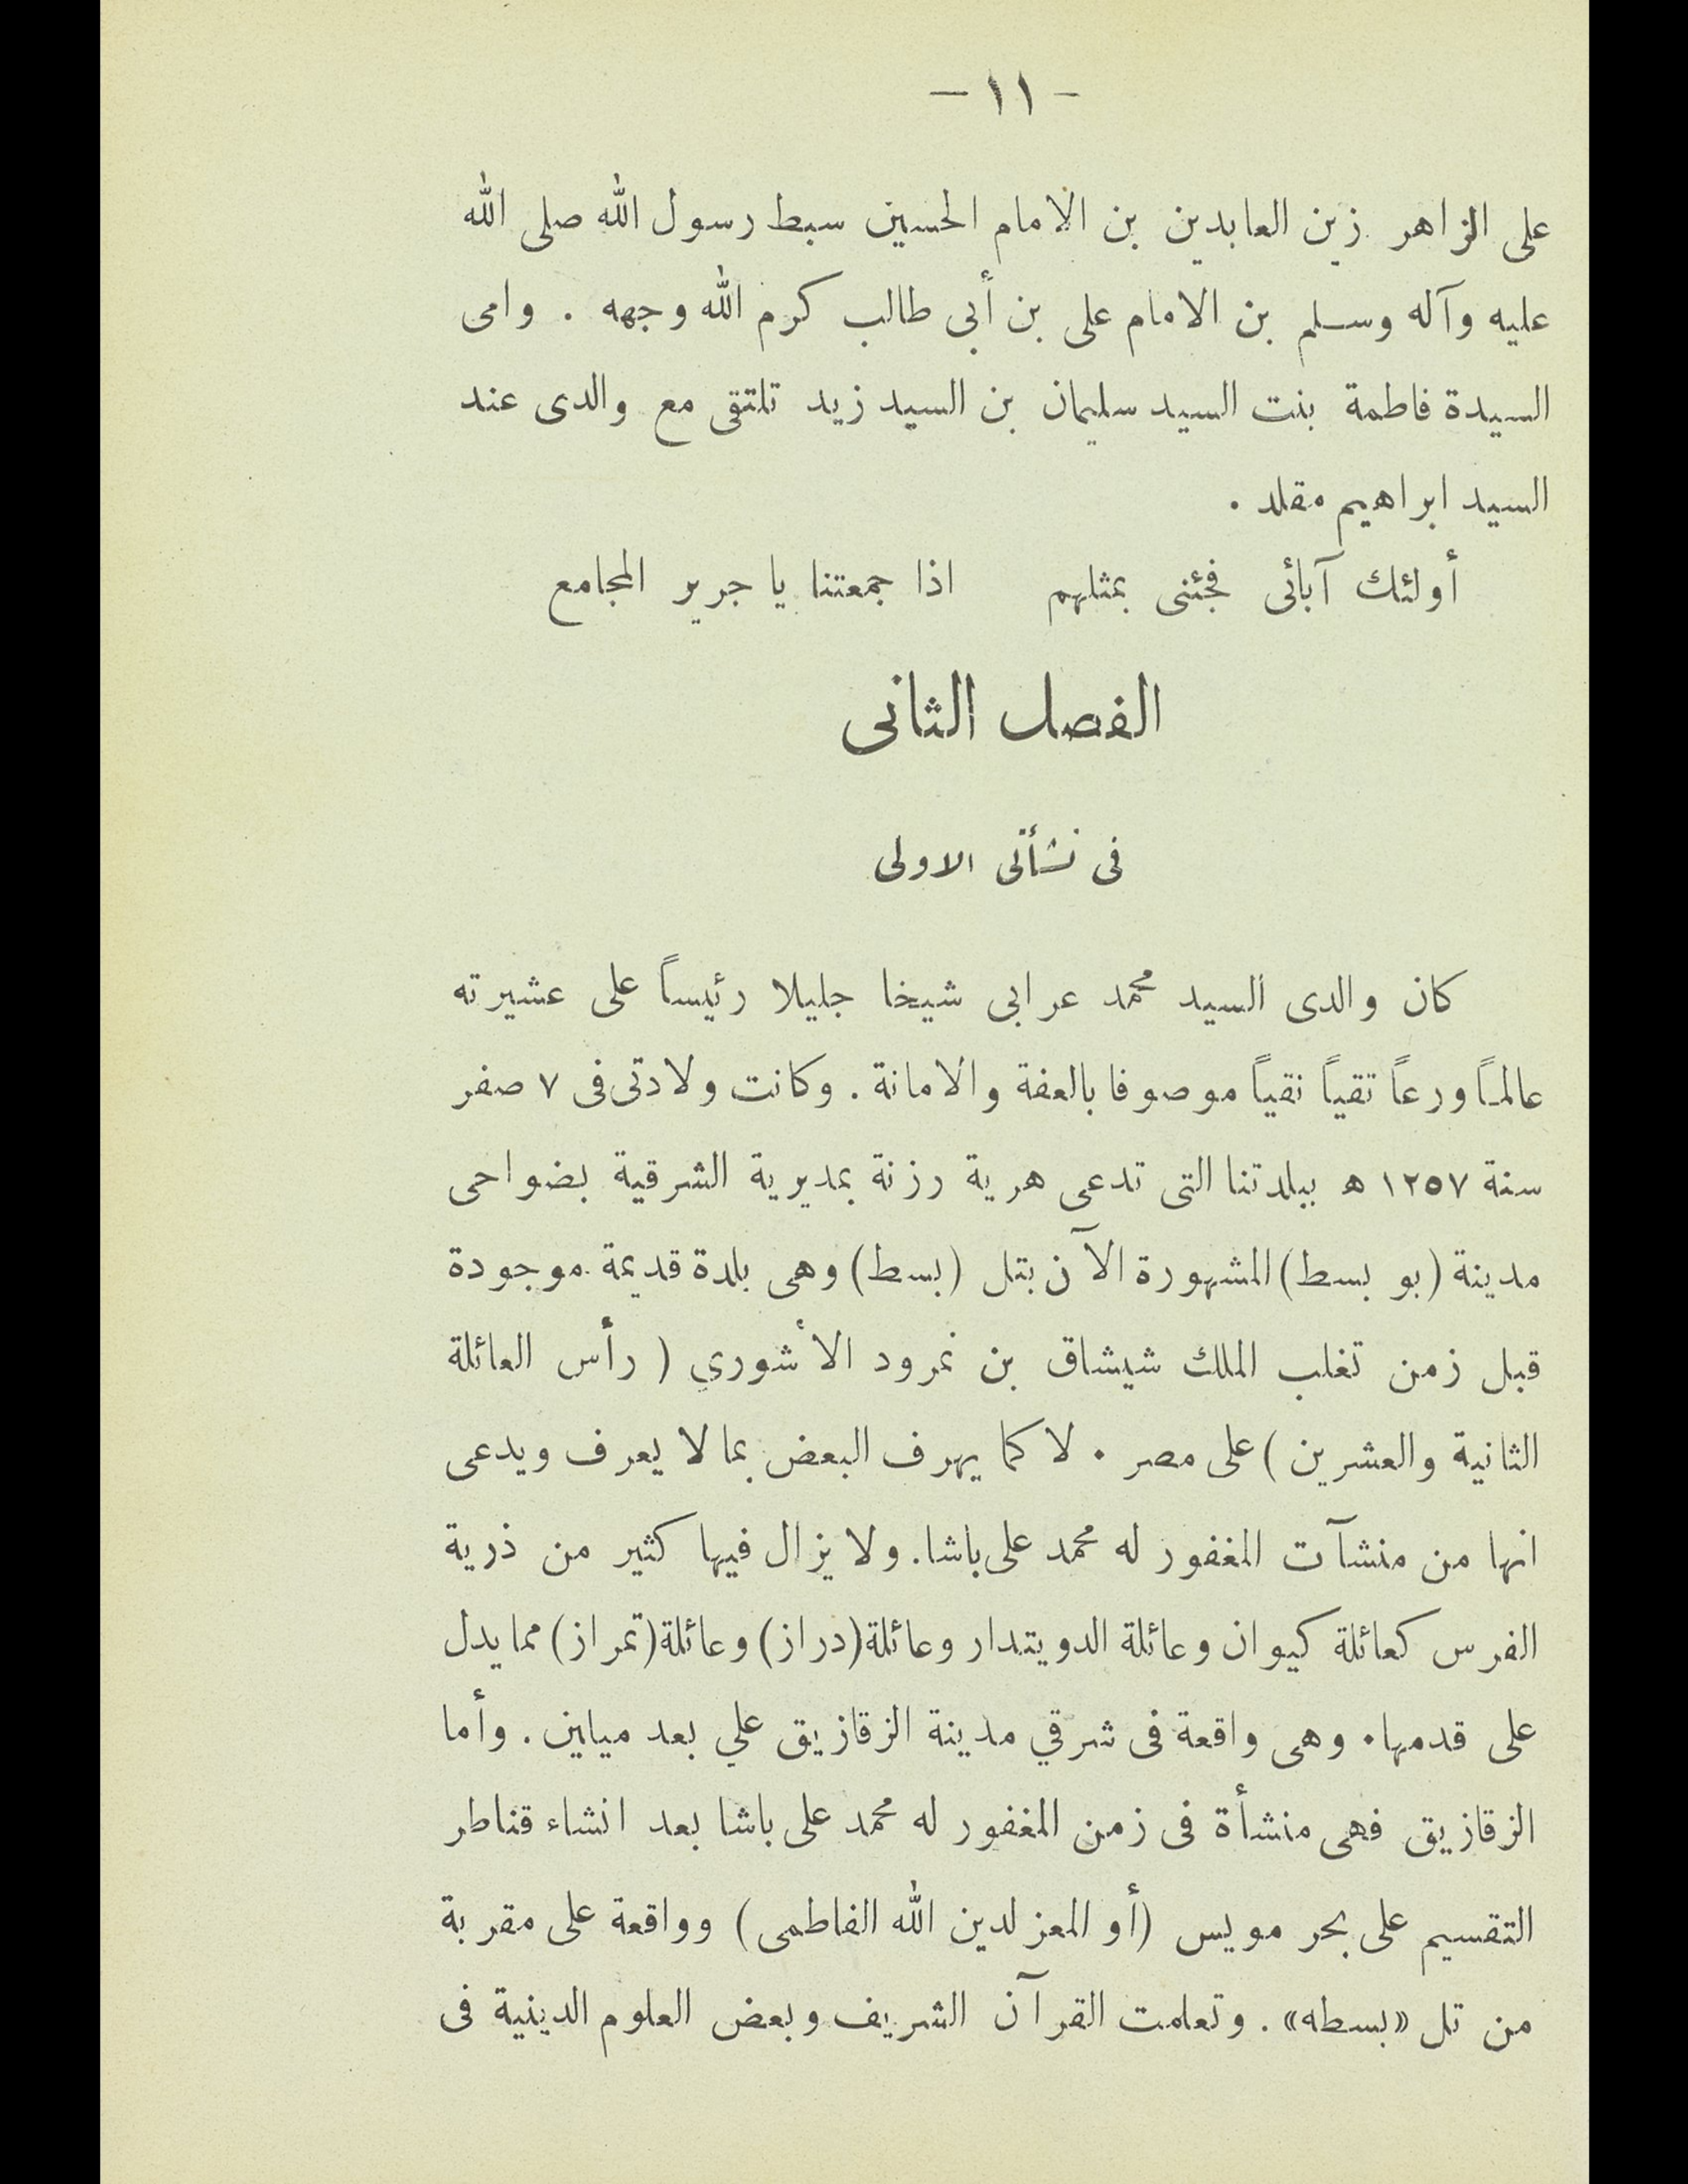 - ١١ -
على الزاهر زين العابدين بن الامام الحسين سبط رسول الله صلى الله
عليه وآله وسلم بن الامام على بن أبى طالب كرم الله وجهه . وامى
السيدة فاطمة بنت السيد سليمان بن السيد زيد تلتقى مع والدى عند
السيد ابراهيم مقلد .
أولئك آبائى فجئنى بمثلهم اذا جمعتنا يا جرير المجامع
الفصل الثانى
فى نشأتى الاولى
كان والدى السيد محمد عرابى شيخا جليلا رئيساً على عشيرته
عالماً ورعاً تقياً نقياً موصوفا بالعفة والامانة . وكانت ولادتى فى ٧ صفر
سنة ١٢٥٧ ه ببلدتنا التى تدعى هرية رزنة بمديرية الشرقية بضواحى
مدينة (بو بسط) المشهورة الآن بتل (بسط) وهى بلدة قديمة موجودة
قبل زمن تغلب الملك شيشاق بن نمرود الأشوري ( رأس العائلة
الثانية والعشرين ) على مصر . لا كما يهرف البعض بما لا يعرف ويدعى
انها من منشآت المغفور له محمد على باشا. ولا يزال فيها كثير من ذرية
الفرس كعائلة كيوان وعائلة الدويتدار وعائلة (دراز) وعائلة (تمراز) مما يدل
على قدمها. وهى واقعة فى شرقي مدينة الزقازيق علي بعد ميلين . وأما
الزقازيق فهى منشأة فى زمن المغفور له محمد على باشا بعد انشاء قناطر
التقسيم على بحر مويس (أو المعز لدين الله الفاطمى) وواقعة على مقربة
من تل «بسطه» . وتعلمت القرآن الشريف وبعض العلوم الدينية فى